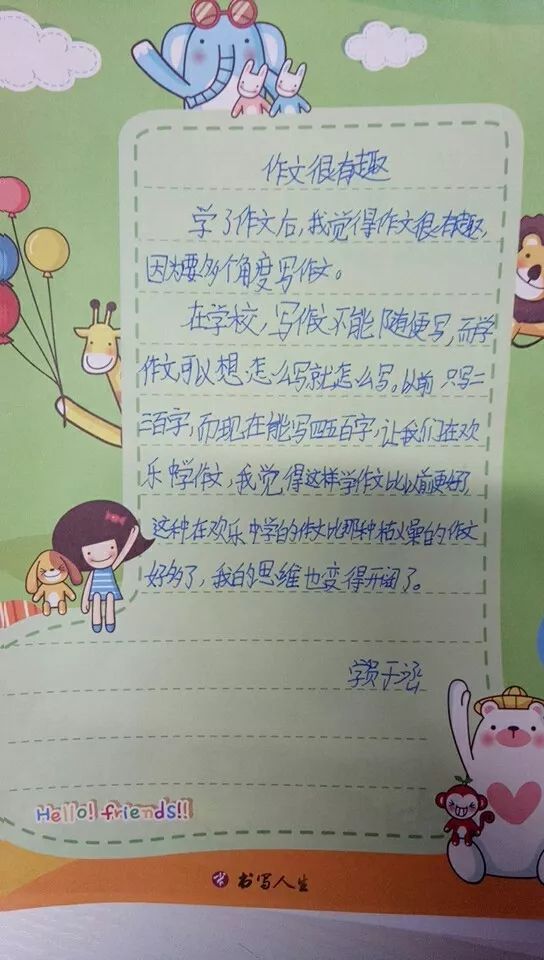 作文很有趣
学了作文后,我觉得作文很有趣,
因为要多个角度写作文。
在学校,写作文不能随便写,而学
作文可以想怎么写就怎么写。以前只写二
三百字,而现在能写四五百字,让我们在欢
乐中学作文,我觉得这样学作文比以前更好,
这种在欢乐中学的作文比那种枯燥的作文
好多了,我的思维也变得开阔了。
学员于
Hello! friends!!
书写人生